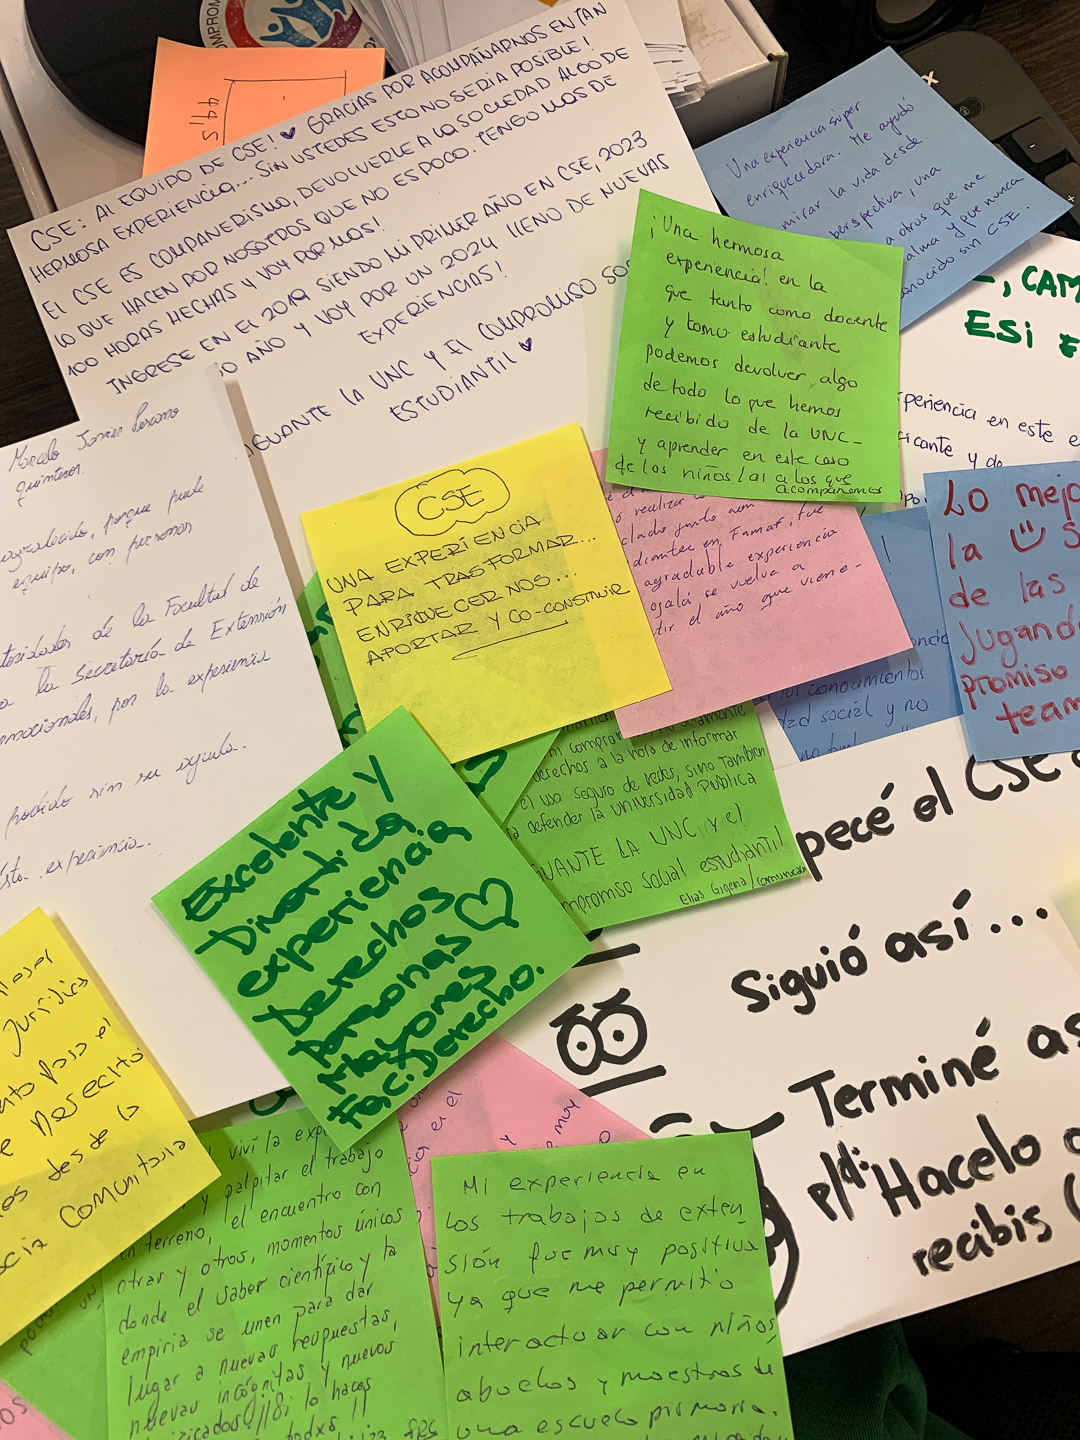 COMPROM
44,5
CSE: Al EQUIPO DE CSE! GRACIAS POR ACOMPAÑARNOS EN TAN
HERMOSA EXPERIENCIA... SIN USTEDES ESTO NO SERIA POSIBLE!
El CSE ES COMPAÑERISMO, DEVOLVERLE A LA SOCIEDAD ALGO DE
LO QUE HACEN POR NOSOTROS QUE NO ES POCO. TENGO MAS DE
100 HORAS HECHAS Y VOY POR MAS!
INGRESE EN El 2019 SIENDO MI PRIMER AÑO EN CSE, 2023
AÑO Y VOY POR UN 2024 LLENO DE NUEVAS
EXPERIENCIAS!
GUANTE LA UNC Y El COMPROMISO SO
ESTUDIANTIL
Una experiencia súper
enriquecedora. Me ayudó
mirar la vida desde
perspectiva, una
a otros que me
alma y que nunca
conocido sin CSE.
¡Una hermosa
experiencia! en la
que tanto como docente
y como estudiante
podemos devolver algo
de todo lo que hemos
recibido de la UNC-
y aprender en este caso
de los niños/as a los que
acompañamos
, CAM
ESI E
periencia en este e
icante y de
Marcelo Javier Lescano
quinteros.
agradecido, porque pude
equipo, con personas
toridades de la Facultad de
a la Secretaría de Extensión
emocionales, por la experiencia
podido sin su ayuda.
esta experiencia.
CSE
UNA EXPERIENCIA
PARA TRASFORMAR...
ENRIQUECERNOS...
APORTAR Y CO-CONSTRUIR
realizar
diantes en Famaf, fue
agradable experiencia
ojalá se vuelva a
tir el año que viene-
Lo mejo
la S
de las
Jugando
promiso
team
conocimientos
dad social y no
mi compro
derechos a la hora de informar
el uso seguro de redes, sino también
a defender la universidad pública
GUANTE LA UNC y el
mpromiso social estudiantil
Elias Gigena/comunicac
Excelente y
Divertida
experiencia
Derechos
personas
Mayores
Fac. Derecho.
pecé el CSE
Siguió así...
Terminé as
p/d: Hacelo
recibis (
Jurídica
desde la
cia Comunitaria
viví la exp
y palpitar el trabajo
en terreno, el encuentro con
otras y otros, momentos únicos
donde el saber científico y la
empiria se unen para dar
lugar a nuevas respuestas,
nuevas incógnitas y nuevos
Si lo haces
todxs
muy
Mi experiencia en
los trabajos de exten
sión fue muy positiva
ya que me permitió
interactuar con niños,
abuelos y maestras de
una escuela primaria.